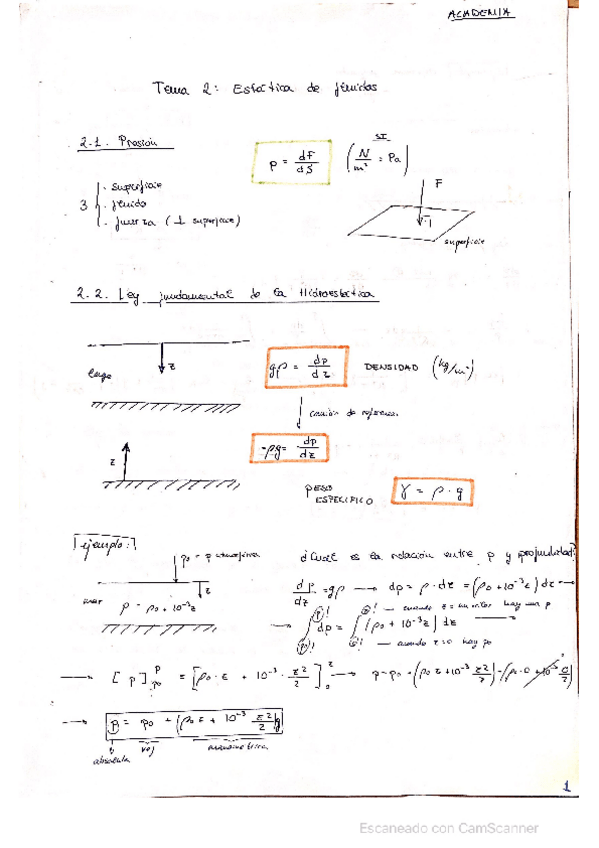 ACADEMIA
Tema 2: Estática de fluidos
2.1. Presión
p = dF/dS (N/m² = Pa)
SI
3 { · superficie
· fluido
· fuerza (⊥ superficie)
F
superficie
2.2. Ley fundamental de la Hidroestática
z
gρ = dp/dz DENSIDAD (kg/m³)
cambio de referencia
z
-ρg = dp/dz
PESO ESPECIFICO γ = ρ · g
ejemplo:
p0 = p atmosférica ¿Cual es la relación entre p y profundidad?
z
mar ρ = ρ0 + 10⁻³z
dp/dz = gρ → dp = ρ · dz = (ρ0 + 10⁻³z) dz →
→ ∫ dp = ∫ (ρ0 + 10⁻³z) dz →
cuando z = 0 hay p0
→ [p] p p0 = [ρ0 · z + 10⁻³ · z²/2] z 0 → p - p0 = (ρ0 z + 10⁻³ z²/2) - (ρ0 · 0 + 10⁻³ 0/2)
→ p = p0 + (ρ0 z + 10⁻³ z²/2) g
absoluta manométrica
1
Escaneado con CamScanner